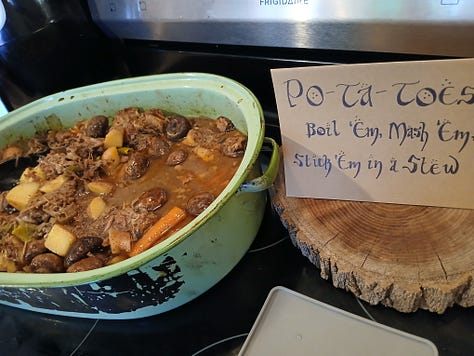 FRIGIDAIRE
Po-Ta-Toes
Boil 'Em, Mash 'Em,
Stick 'Em in a Stew